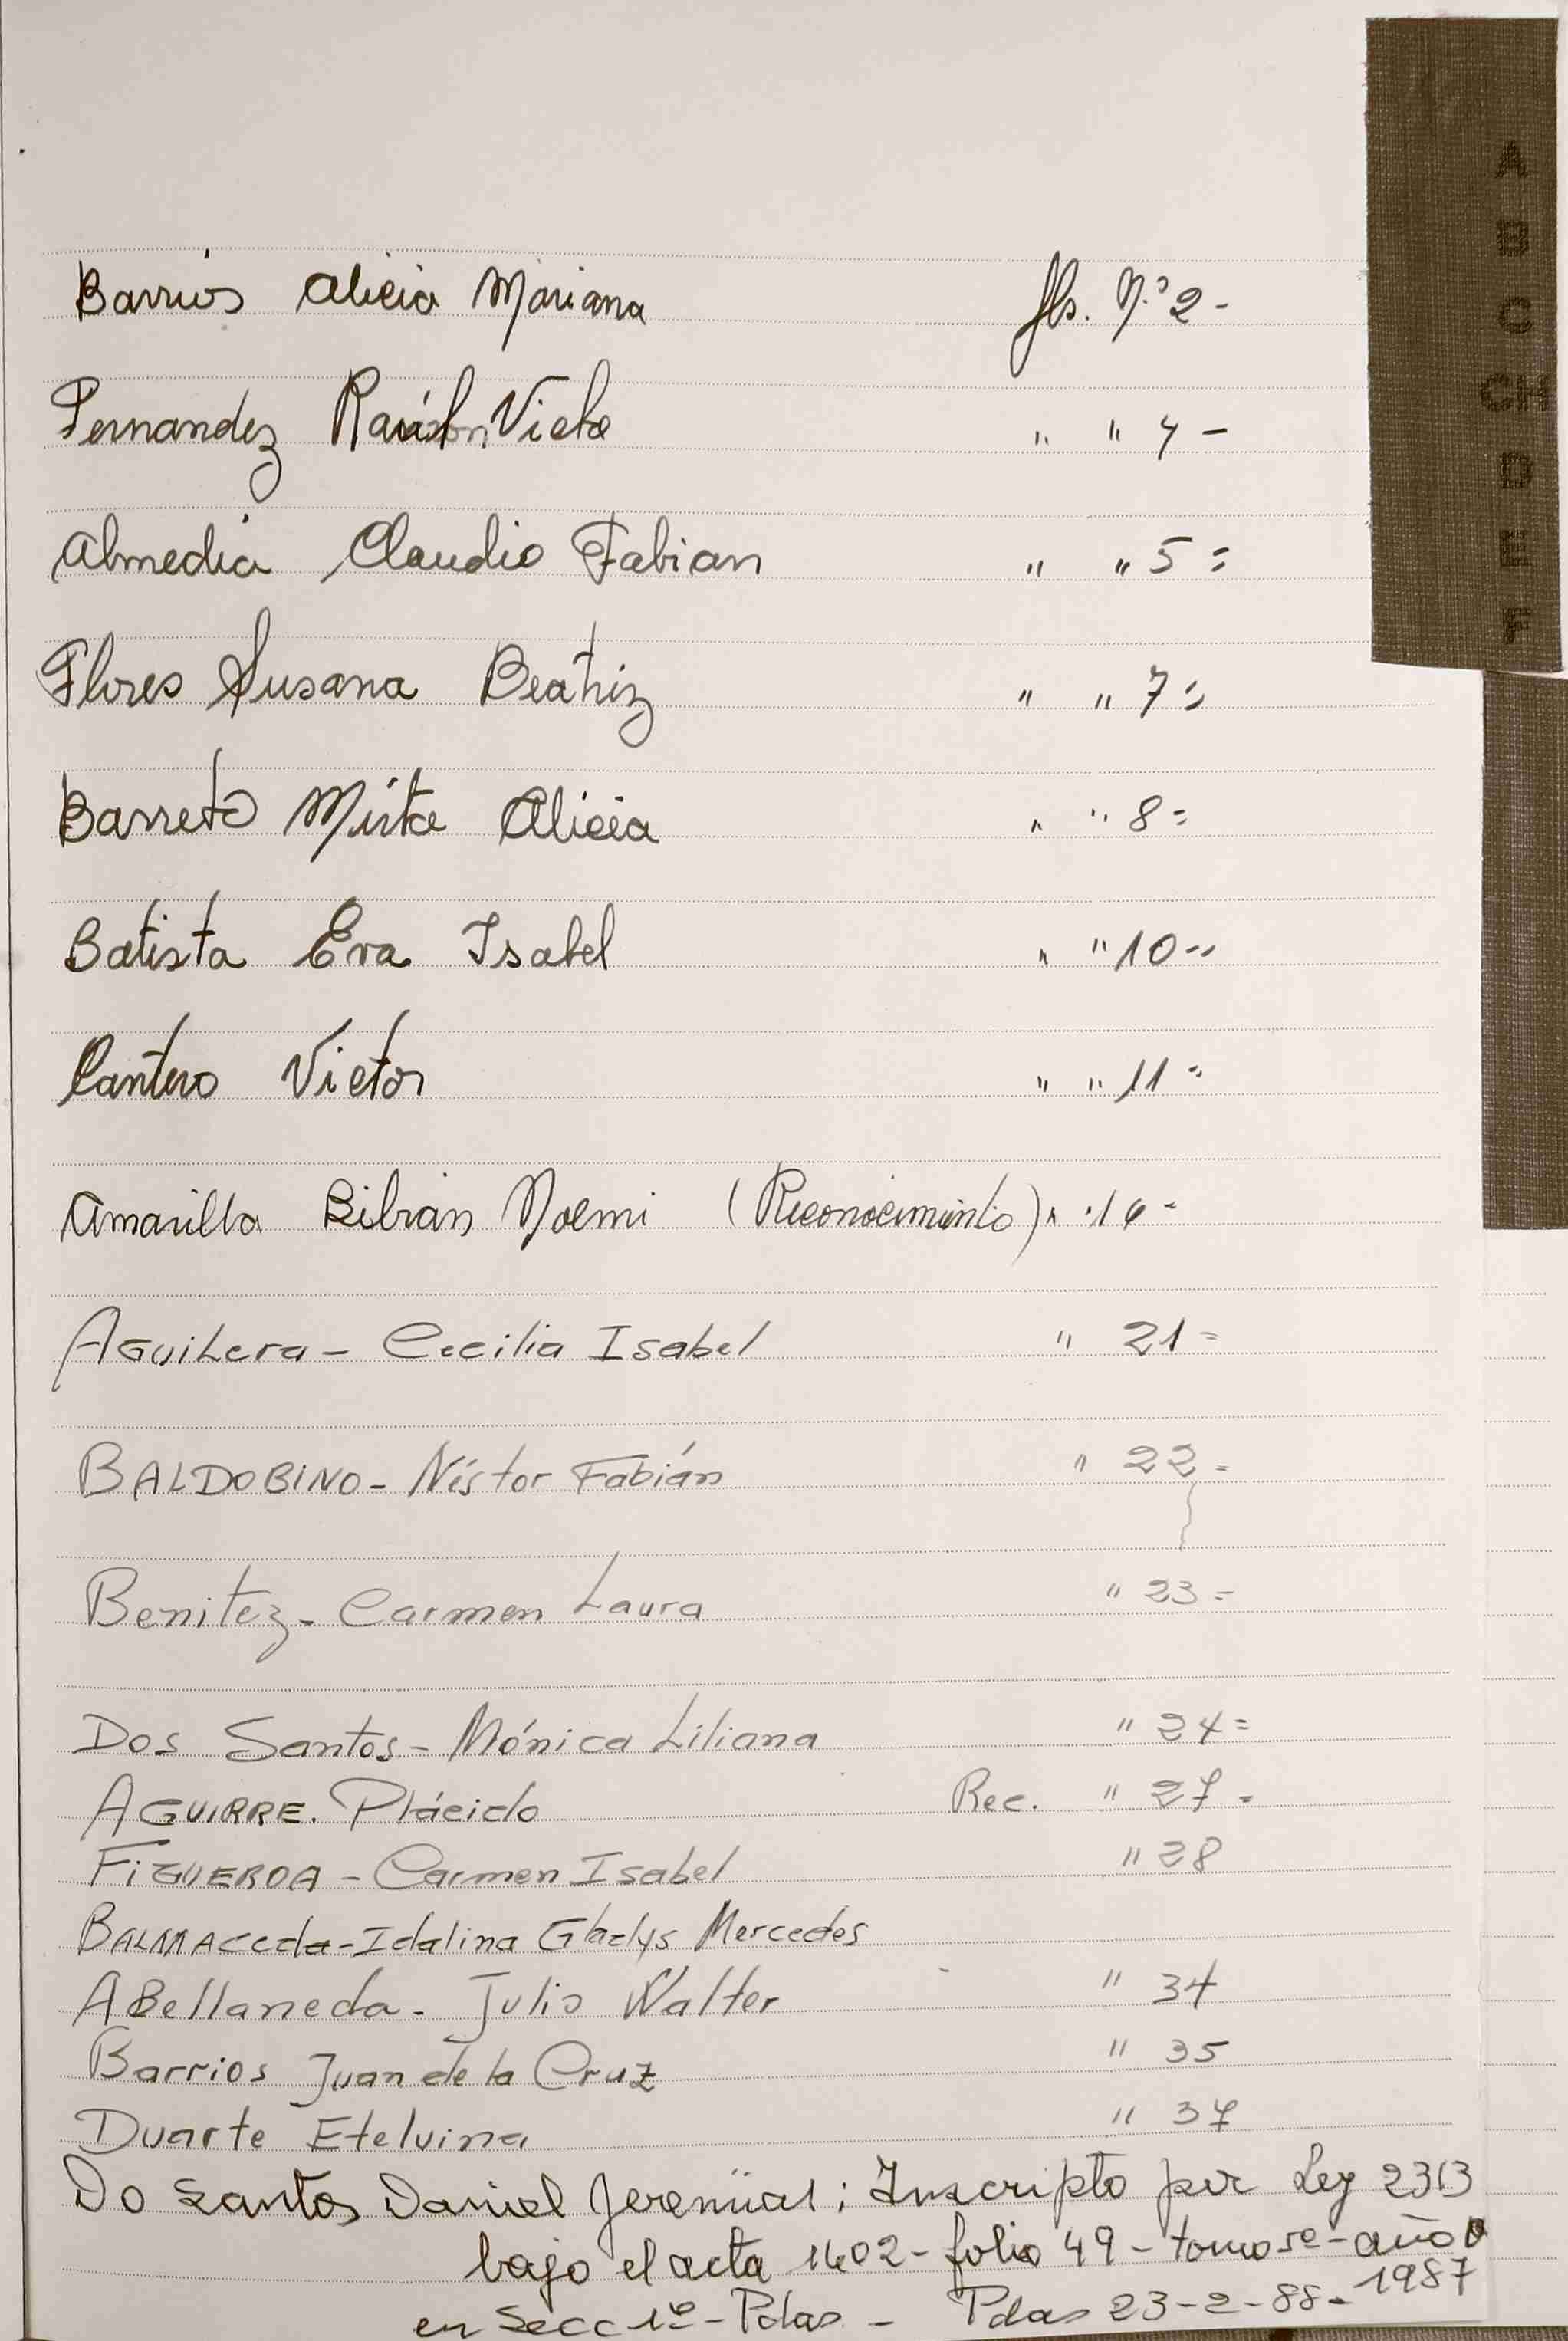 Barrios Alicia Mariana fls. N.º 2 -
Fernandez Ramón Victor " " 4 -
Almedia Claudio Fabian " " 5 =
Flores Susana Beatriz " " 7 =
Barreto Mirta Alicia " " 8 =
Batista Eva Isabel " " 10 =
Cantero Victor " " 11 =
Amarilla Bibian Noemi (Reconocimiento) " " 16 -
AGuiLera - Cecilia Isabel " 21 =
BALDOBINO - Néstor Fabián " 22 =
Benitez - Carmen Laura " 23 =
Dos Santos - Mónica Liliana " 24 =
AGUIRRE. Plácido Rec. " 27 =
FiGUEROA - Carmen Isabel " 28
BALMACeda - Idalina Gladys Mercedes
ABellaneda - Julio Walter " 34
Barrios Juan de la Cruz " 35
Duarte Etelvina " 37
Do Santos Daniel Jeremias; Inscripto por Ley 2313
bajo el acta 1402 - folio 49 - tomo 5º - año
1987
en Secc 1º - Pdas - Pdas 23-2-88 -
A
B
C
CH
D
E
F